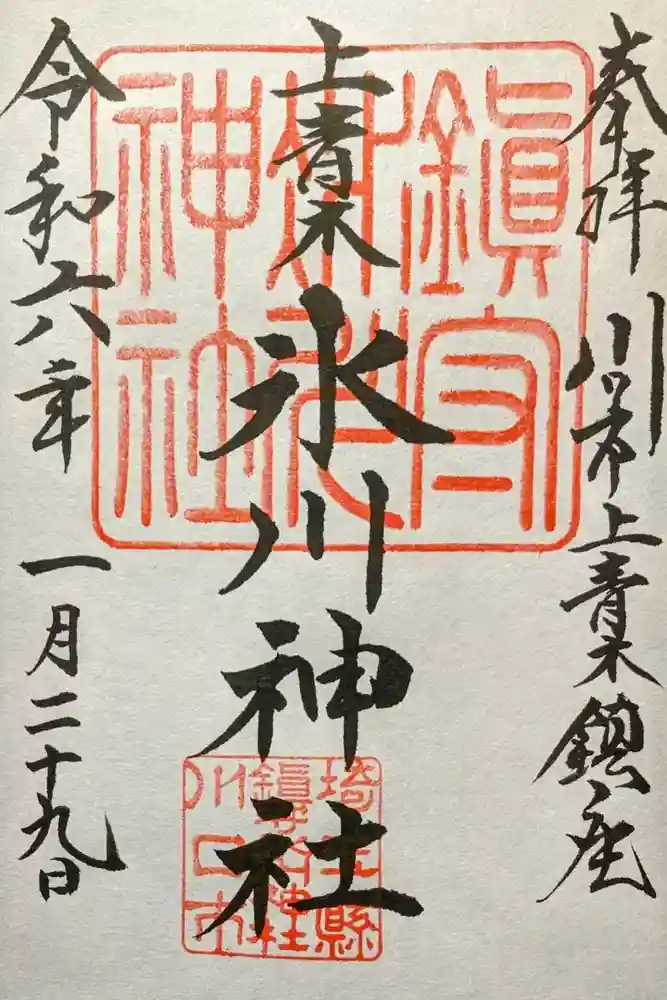 奉拝
川口市上青木鎮座
上青木
氷川神社
令和六年
一月二十九日
鎮守
神社
埼玉縣
川口市